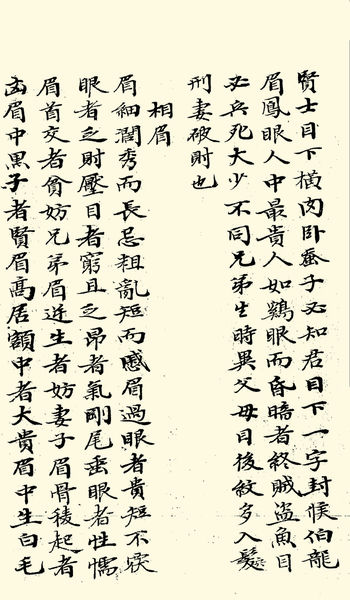 賢士目下横肉卧蚕子必知君目下一字封候伯龍
眉鳳眼人中最貴人如鷄眼而昏暗者終賊盜魚目
必兵死大少不同兄弟生時異父母目後紋多入髮
刑妻破財也
相眉
眉細濶秀而長忌粗亂短而慼眉過眼者貴短不及
眼者乏財壓目者窮且乏昂者氣剛尾垂眼者性懦
眉首交者貧妨兄弟眉逆生者妨妻子眉骨稜起者
凶眉中黑子者賢眉高居額中者大貴眉中生白毛